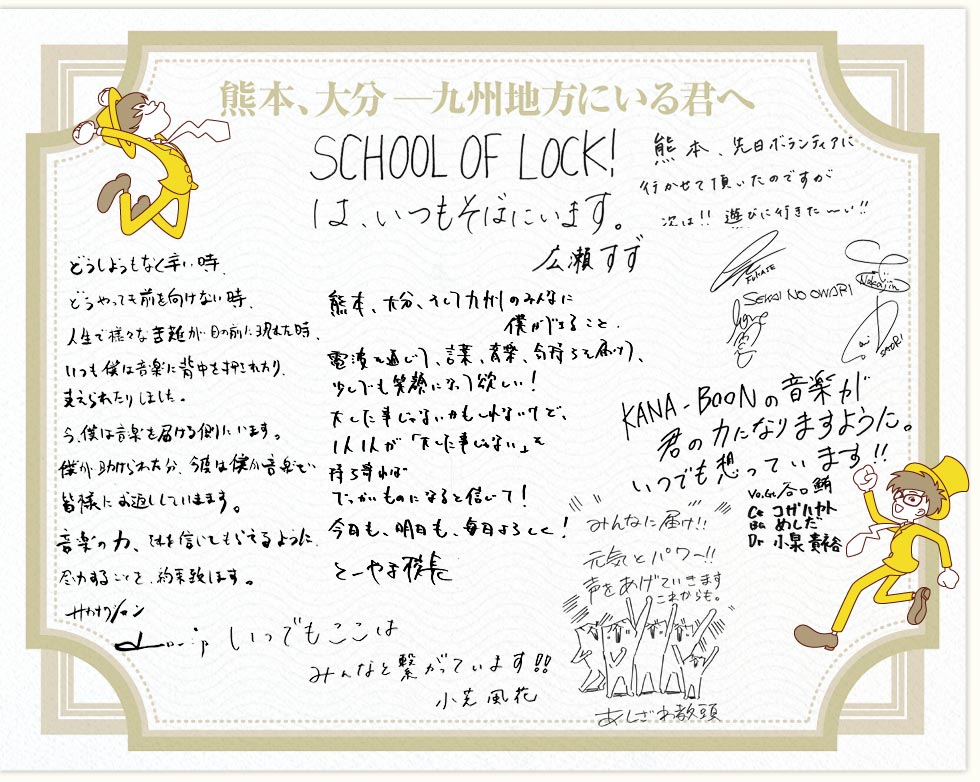 熊本、大分 ―九州地方にいる君へ
SCHOOL OF LOCK!
は、いつもそばにいます。
広瀬すず
熊本、先日ボランティアに
行かせて頂いたのですが
次は!! 遊びに行きた〜い!!
FUKASE
Nakajin
SEKAI NO OWARI
SAORI
どうしようもなく辛い時、
どうやっても前を向けない時、
人生で様々な苦難が目の前に現れた時、
いつも僕は音楽に背中を押されたり、
支えられたりしました。
今、僕は音楽を届ける側にいます。
僕が助けられた分、今度は僕が音楽で
皆様にお返ししていきます。
音楽の力、それを信じてもらえるように、
尽力することを、約束致します。
サカナクション
熊本、大分、そして九州のみんなに
僕ができること。
電波を通じて、言葉、音楽、気持ちを届けて、
少しでも笑顔になって欲しい!
大した事じゃないかもしれないけど、
1人1人が「大した事じゃない」を
持ち寄れば
でっかいものになると信じて!
今日も、明日も、毎日よろしく!
とーやま校長
KANA-BOONの音楽が
君の力になりますように。
いつでも想っています!!
Vo.Gt. 谷口鮪
Gt コガハヤト
Ba めしだ
Dr 小泉貴裕
みんなに届け!!
元気とパワー!!
声をあげていきます
これからも。
あしざわ教頭
いつでもここは
みんなと繋がっています!!
小芝風花